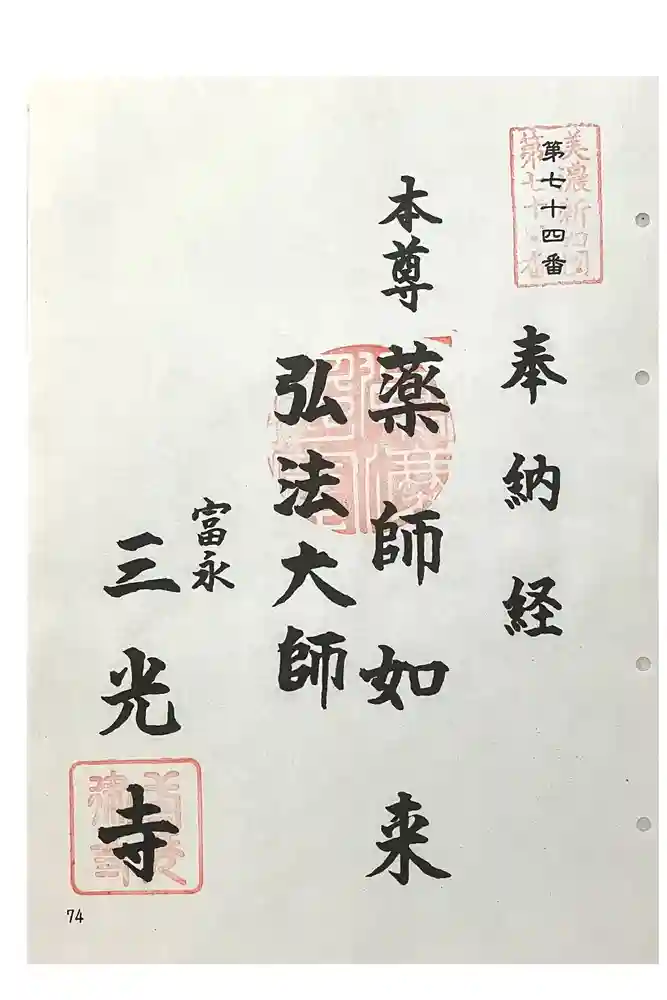 第七十四番
美濃新四国
第七十四番
奉納経
本尊 薬師如来
弘法大師
富永
三光寺
74